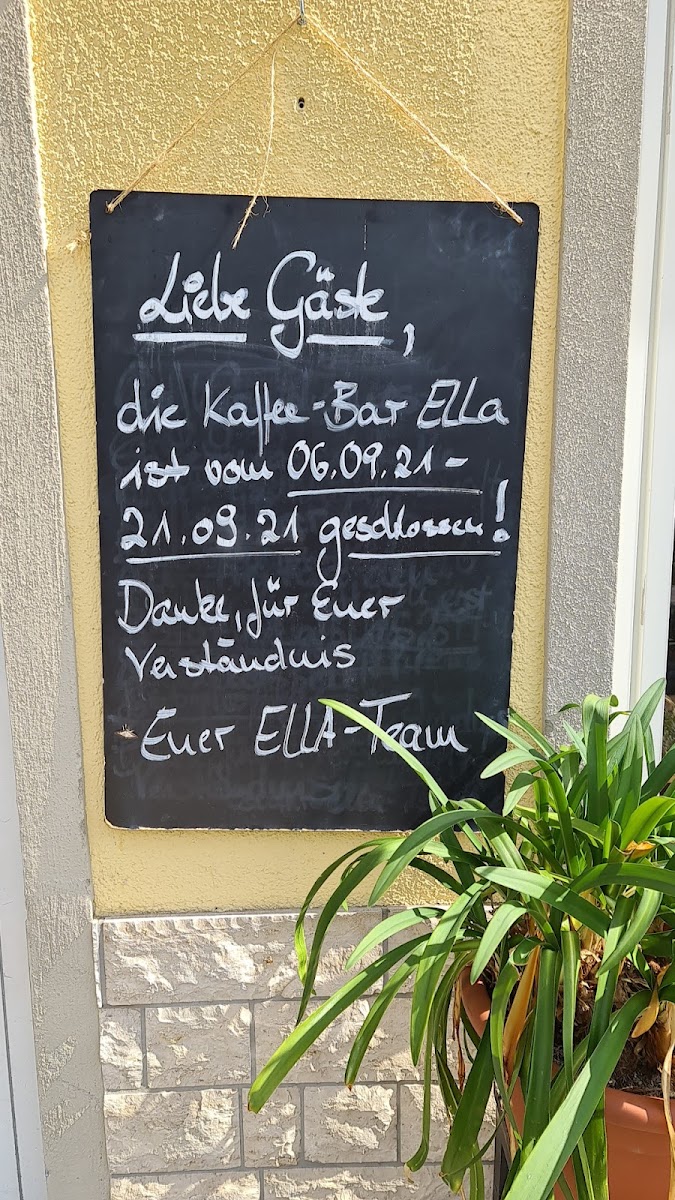 Liebe Gäste,
die Kaffee-Bar ELLa
ist vom 06.09.21-
21.09.21 geschlossen!
Danke, für Euer
Verständnis
Euer ELLA-Team